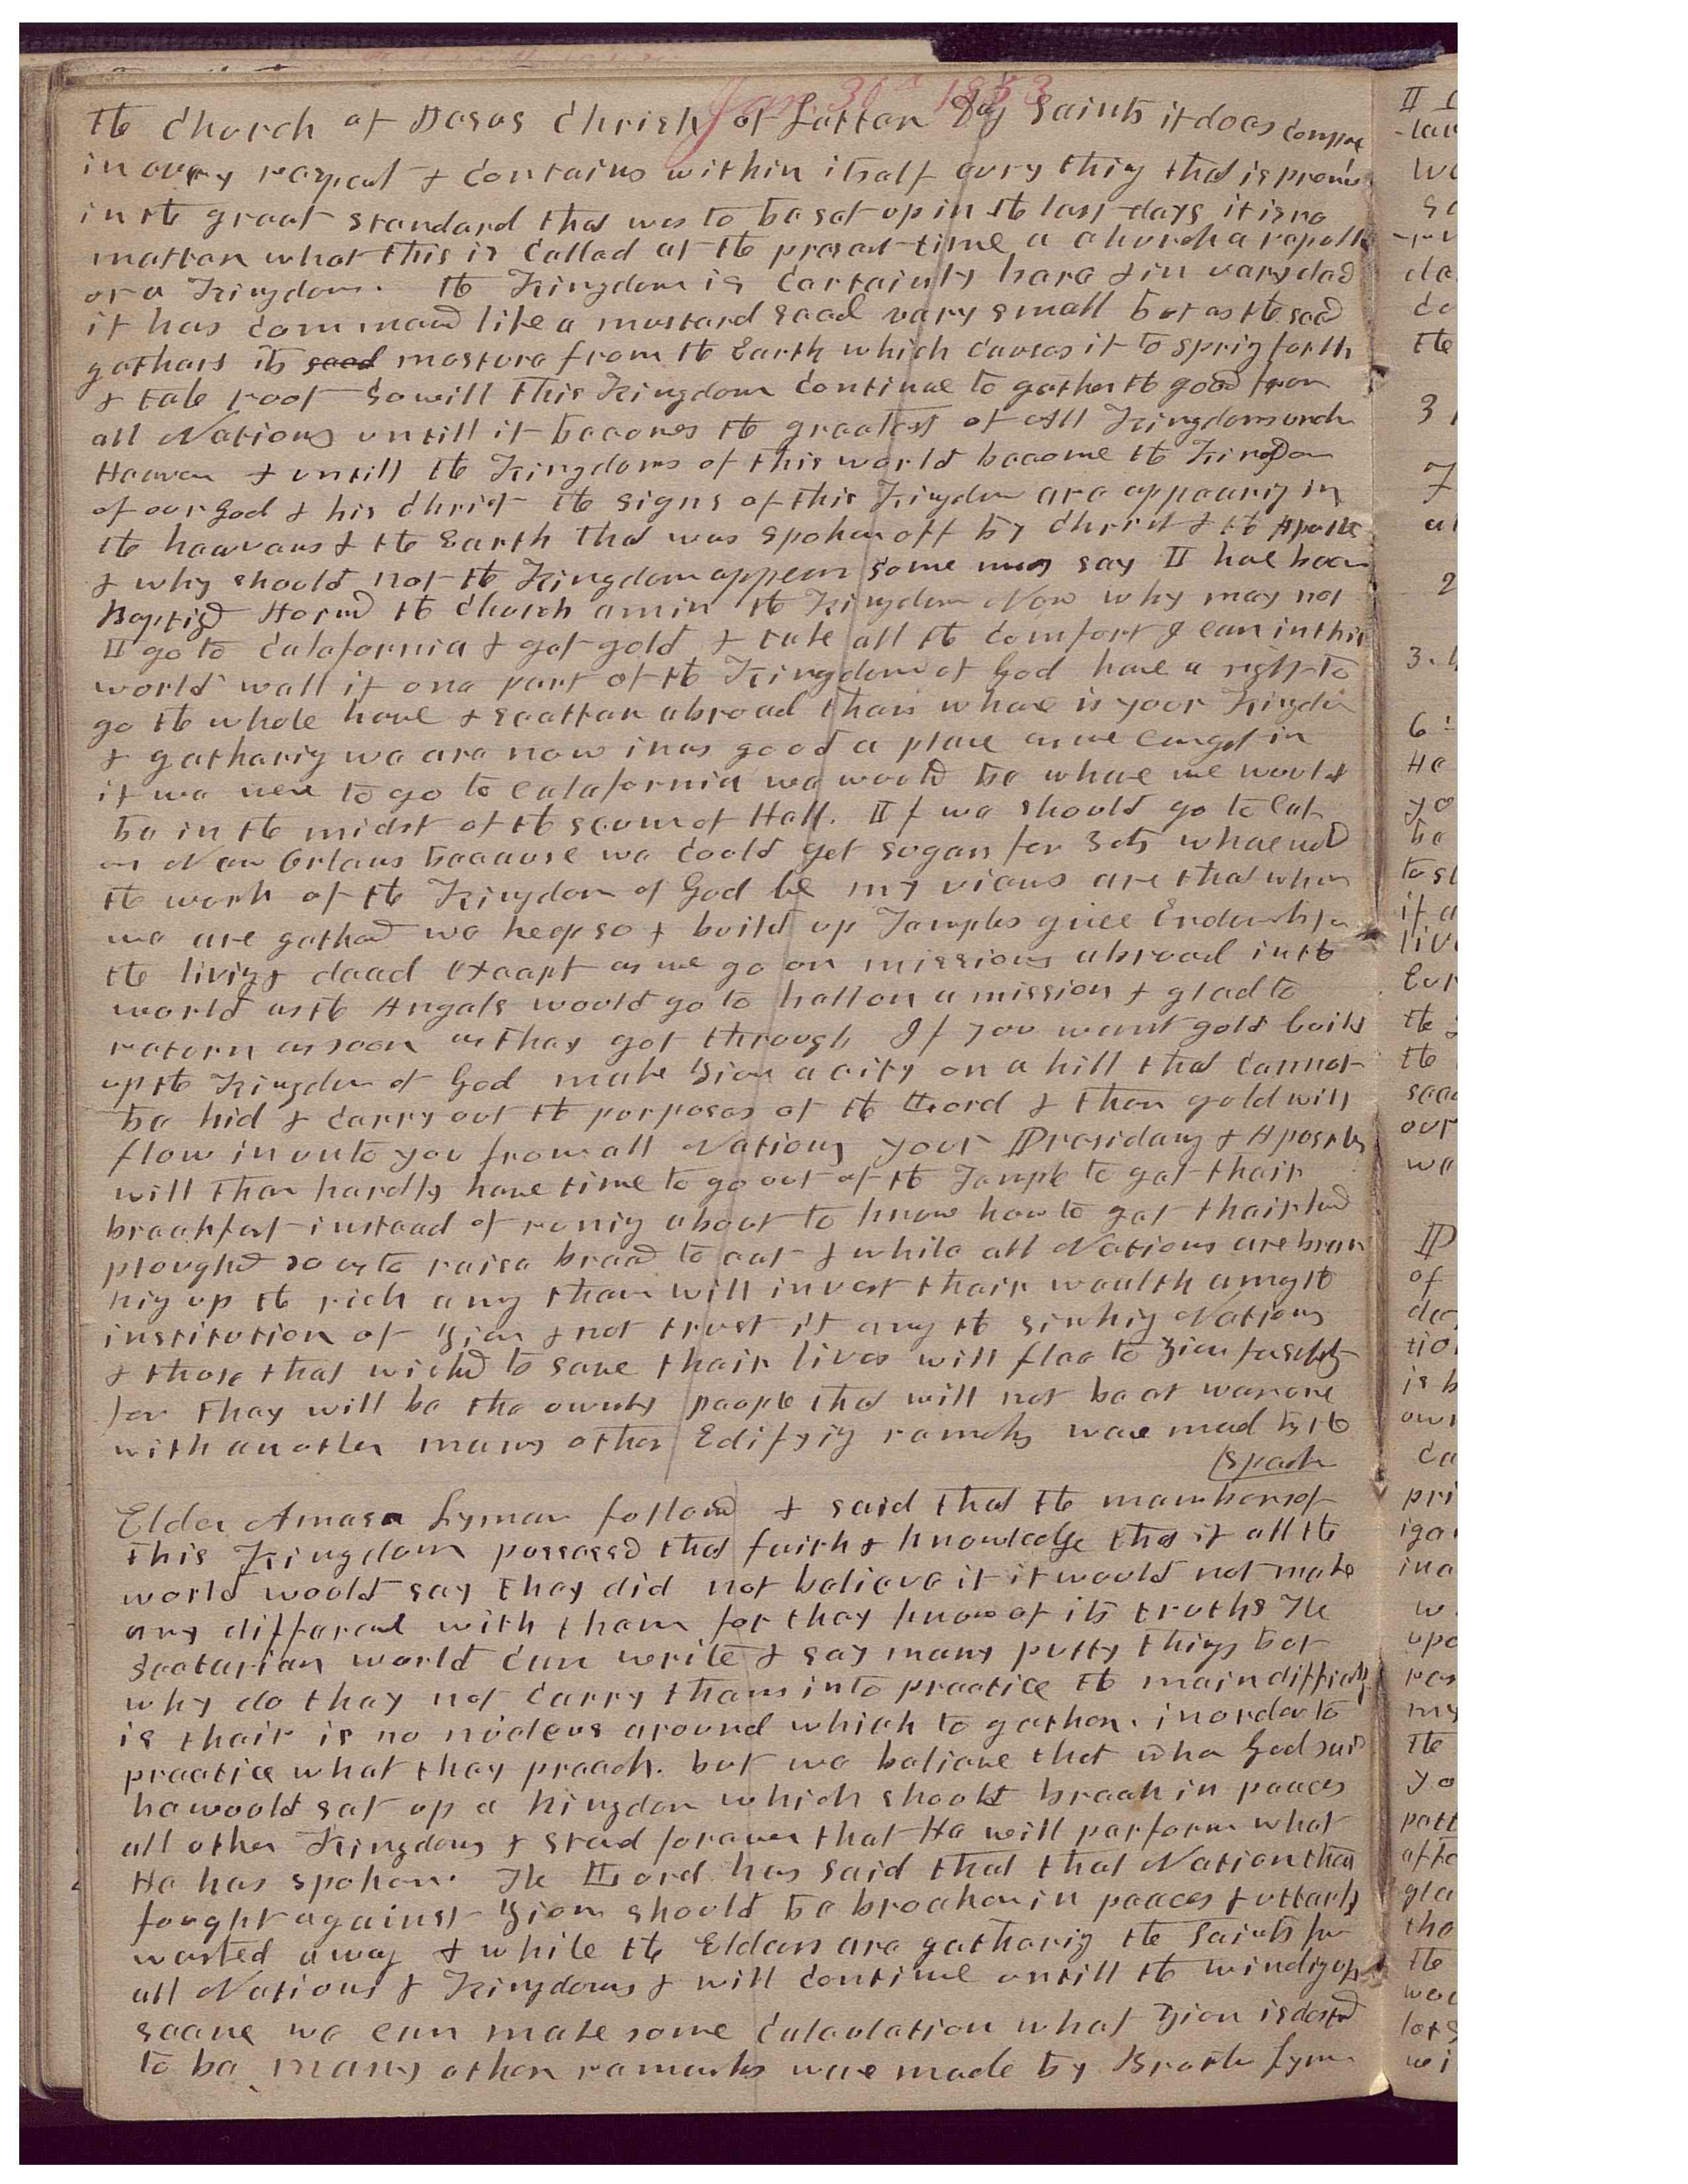 Jan. 30th 1853
the Church of Jesus Christ of Latter Day Saints it does compare
in every respect & contains within itself evry thing that is promised
in the great standard that was to be set up in the last days it is no
matter what this is Called at the present time a church a republic
or a Kingdom. the Kingdom is Certainly here & in vary deed
it has Commenced like a mustard seed vary small but as the seed
gathers its seed mosture from the Earth which Causes it to sprig forth
& take root so will this Kingdom Continue to gather the good from
all Nations untill it becomes the greatest of All Kingdoms under
Heaven & untill the Kingdoms of this world become the Kingdom
of our God & his Christ the signs of this Kingdom are appearig in
the heavens & the Earth that was spoken off by Christ & the Apostles
& why should not the Kingdom appear some may say I have been
Baptized Joined the Church am in the Kingdom Now why may not
I go to Calafornia & get gold & take all the Comfort I can in this
world well if one part of the Kingdom of God have a right to
go the whole have & scatter abroad then whare is your Kingdom
& gatherig we are now in as good a place as we can get in
if we were to go to Calafornia we would be whare we would
be in the midst of the scum of Hell. If we should go to Cal
or New Orleans because we Could get sugar for 3 cts whare would
the work of the Kingdom of God be my views are that when
we are gathered we keep so & build up Temples give Endowments for
the livig & dead Except as we go on missions abroad in the
world as the Angels would go to hell on a mission & glad to
return as soon as they got through If you want gold build
up the Kingdom of God make Zion a city on a hill that Cannot
be hid & Carry out the purposes of the Lord & then gold will
flow in unto you from all Nations your Presidency & Apostles
will then hardly have time to go out of the Temple to get their
breakfast instead of runig about to know how to get their land
ploughed so as to raise bread to eat & while all Nations are brea
kig up the rich among them will invest their wealth among the
institution of Zion & not trust it among the sinkig Nations
& those that wished to save their lives will flee to Zion for safety
for they will be the ownly people that will not be at war one
with another many other Edifyig remarks ware mad by the
speaker
Elder Amasa Lyman followed & said that the members of
this Kingdom possessed that faith & knowledge that if all the
world would say they did not believe it it would not make
any differance with them for they know of its truths The
Sectarian world Can write & say many putty things but
why do they not Carry them into practice the main difficulty
is their is no nucleus around which to gather. in order to
practice what they preach. but we believe that when God said
he would set up a kingdom which should break in peaces
all other Kingdoms & stand forever that He will perform what
He has spoken. The Lord has said that that Nation that
fought against Zion should be broaken in peaces & utterly
wasted away & while the Elders are gatherig the Saints from
all Nations & Kingdoms & will Continue untill the windig up
scene we can make some Calculation what Zion is destined
to be many other remarks ware made by Brother Lyman